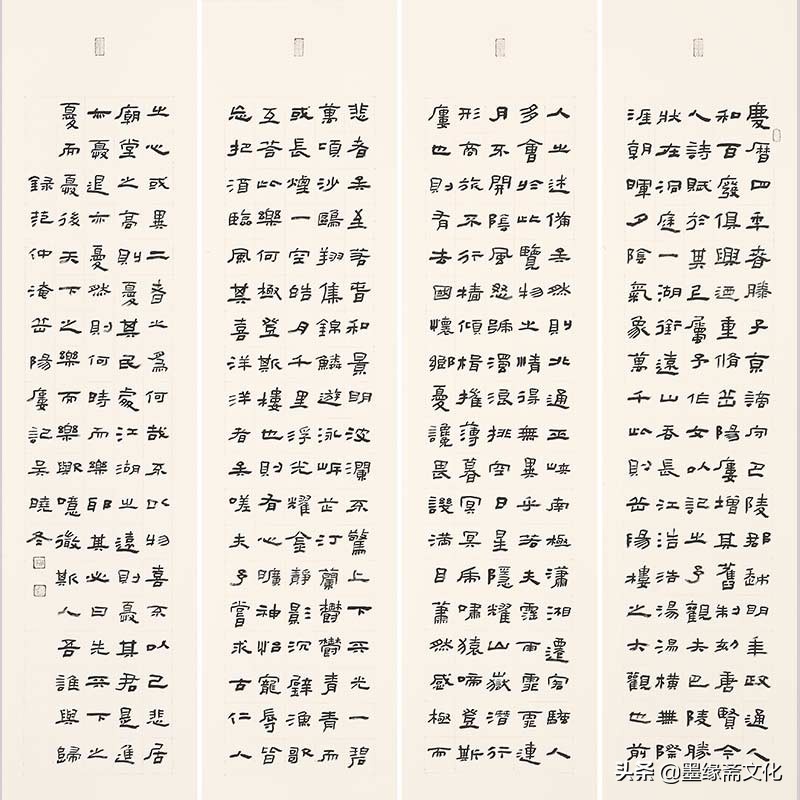 慶曆四年春滕子京謫守巴陵郡越明年政通人
和百廢俱興迺重脩岳陽廔增其舊制刻唐賢今
人詩賦於其上屬予作文以記之予觀夫巴陵勝
狀在洞庭一湖銜遠山吞長江浩浩湯湯橫無際
涯朝暉夕陰氣象萬千此則岳陽樓之大觀也前
人之述備矣然則北通巫峽南極瀟湘遷客騷人
多會於此覽物之情得無異乎若夫霪雨霏霏連
月不開陰風怒號濁浪排空日星隱耀山嶽潛行
形商旅不行檣傾楫摧薄暮冥冥虎嘯猿啼登斯
廔也則有去國懷鄉憂讒畏譏滿目蕭然感極而
悲者矣至若春和景明波瀾不驚上下天光一碧
萬頃沙鷗翔集錦鱗遊泳岸芷汀蘭鬱鬱青青而
或長煙一空皓月千里浮光耀金靜影沉璧漁歌
互答此樂何極登斯樓也則有心曠神怡寵辱皆
忘把酒臨風其喜洋洋者矣嗟夫予嘗求古仁人
之心或異二者之爲何哉不以物喜不以己悲居
廟堂之高則憂其民處江湖之遠則憂其君是進
亦憂退亦憂然則何時而樂耶其必曰先天下之
憂而憂後天下之樂而樂歟噫微斯人吾誰與歸
録范仲淹岳陽廔記吳曉冬
头条 @墨缘斋文化